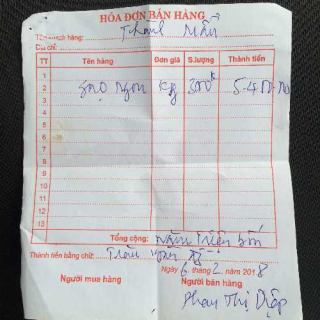 HÓA ĐƠN BÁN HÀNG
Tên khách hàng: Thanh Mẫn
Địa chỉ:
TT Tên hàng Đơn giá S.lượng Thành tiền
1 gạo ngon kg 300k 5.400.000
2
3
4
5
6
7
8
9
10
11
12
13
Tổng cộng: năm triệu bốn
Thành tiền bằng chữ: Trăm ngàn
Ngày 6 tháng 2 năm 2018
Người mua hàng Người bán hàng
Phan Thị Diệp